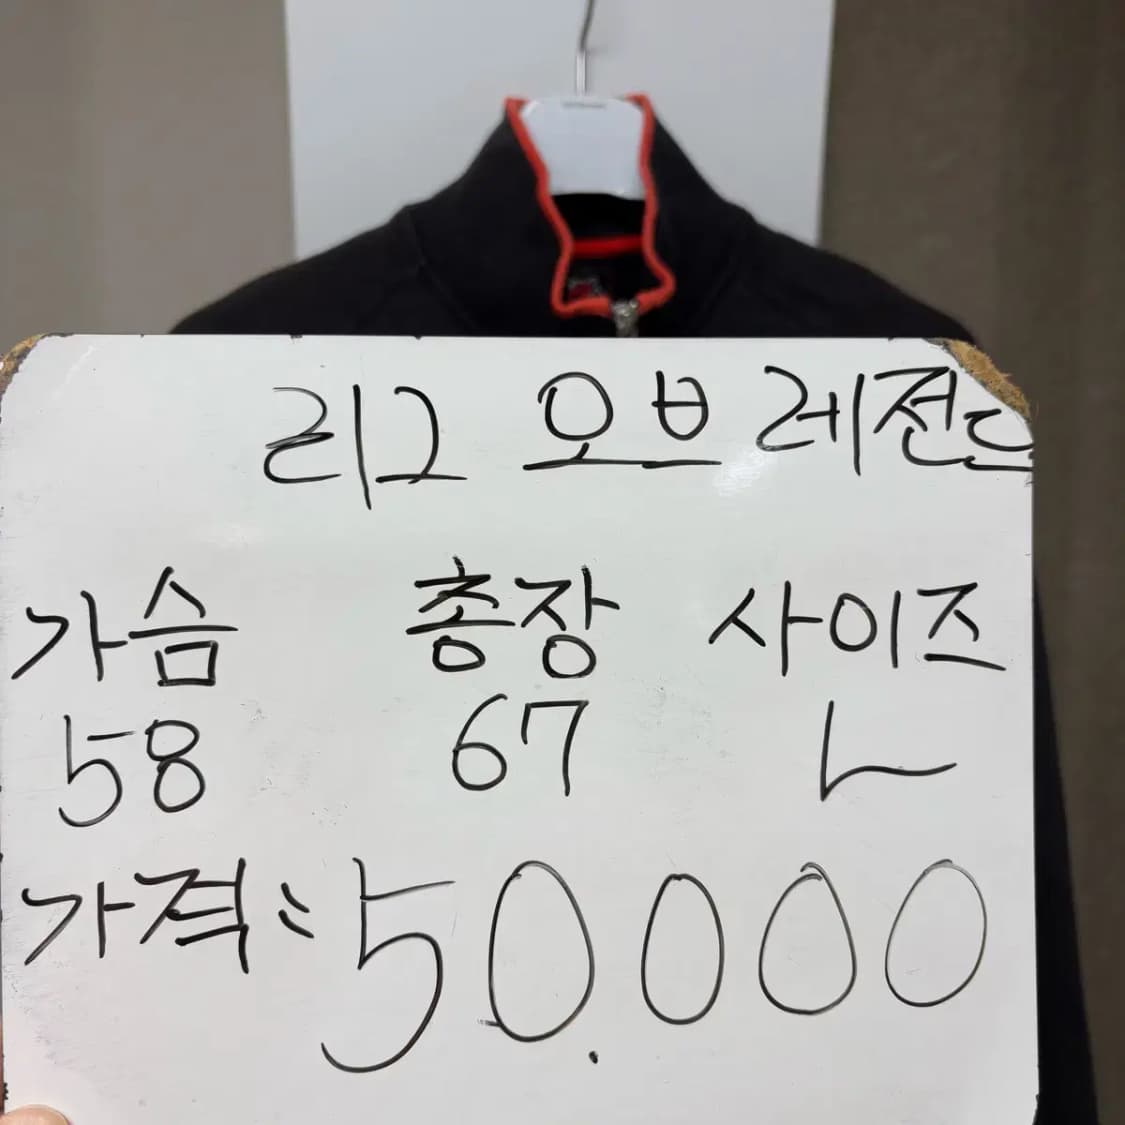 리그 오브 레전드
가슴 총장 사이즈
58 67 L
가격: 50.000